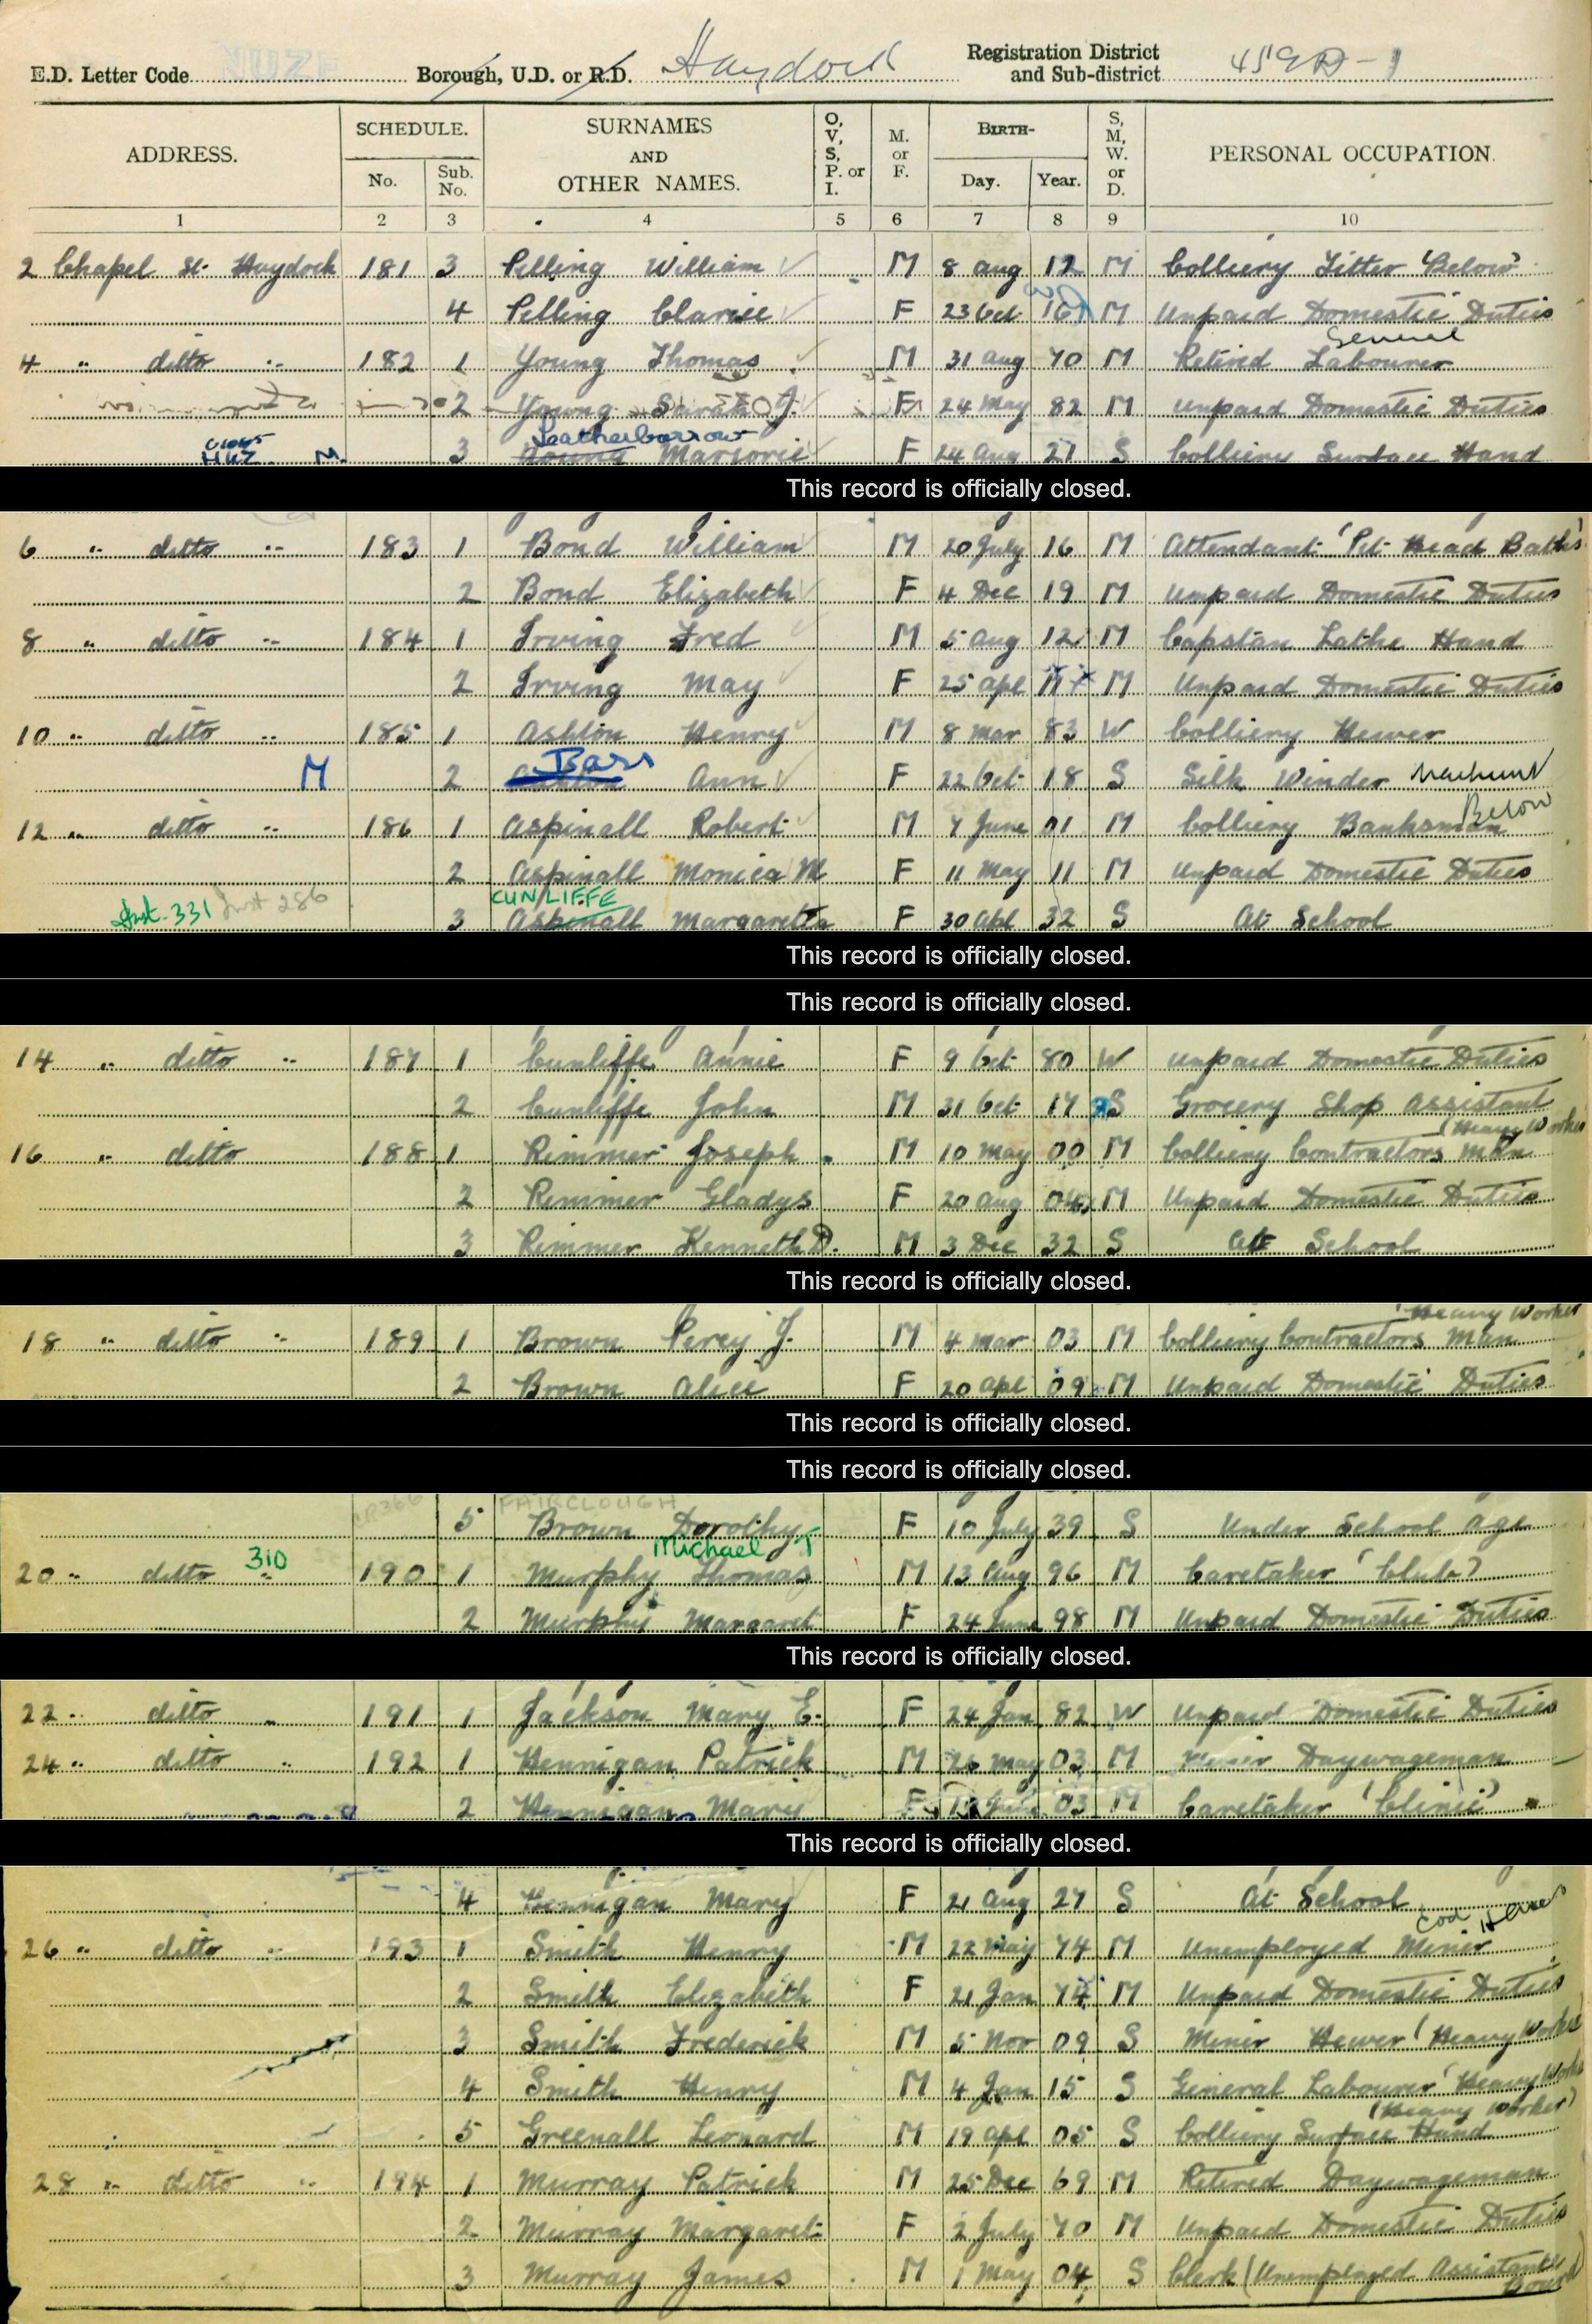 E.D. Letter Code NUZF Borough, U.D. or R.D. Haydock Registration District and Sub-district 459D-1
ADDRESS. SCHEDULE. No. Sub. No. SURNAMES AND OTHER NAMES. O, V, S, P. or I. M. or F. BIRTH- Day. Year. S, M, W. or D. PERSONAL OCCUPATION.
1 2 3 4 5 6 7 8 9 10
2 Chapel St. Haydock 181 3 Pelling William M 8 Aug 12 M Colliery Fitter Below
4 Pelling Clarice F 23 Oct 16 M Unpaid Domestic Duties
General
4 " ditto " 182 1 Young Thomas M 31 Aug 70 M Retired Labourer
2 Young Sarah J. F 24 May 82 M Unpaid Domestic Duties
Leatherbarrow
M. 3 Young Marjorie F 14 Aug 21 S Colliery Surface Hand
This record is officially closed.
6 " ditto " 183 1 Bond William M 20 July 16 M Attendant (Pit Head Baths)
2 Bond Elizabeth F 4 Dec 19 M Unpaid Domestic Duties
8 " ditto " 184 1 Irving Fred M 5 Aug 12 M Capstan Lathe Hand
2 Irving May F 25 Apl 11 M Unpaid Domestic Duties
10 " ditto " 185 1 Ashton Henry M 8 Mar 83 W Colliery Hewer
Bass
M 2 Ashton Ann F 22 Oct 18 S Silk Winder
Below
12 " ditto " 186 1 Aspinall Robert M 7 June 01 M Colliery Banksman
2 Aspinall Monica M F 11 May 11 M Unpaid Domestic Duties
CUNLIFFE
Inst. 331 Inst 286 3 Aspinall Margaretta F 30 Apl 32 S At School
This record is officially closed.
This record is officially closed.
14 " ditto " 187 1 Cunliffe Annie F 9 Oct 80 W Unpaid Domestic Duties
2 Cunliffe John M 31 Oct 17 S Grocery Shop Assistant
(Heavy Worker
16 " ditto 188 1 Rimmer Joseph M 10 May 00 M Colliery Contractors Man
2 Rimmer Gladys F 20 Aug 04 M Unpaid Domestic Duties
3 Rimmer Kenneth D. M 3 Dec 32 S At School
This record is officially closed.
(Heavy Worker
18 " ditto " 189 1 Brown Percy J. M 4 Mar 03 M Colliery Contractors Man
2 Brown Alice F 20 Apl 09 M Unpaid Domestic Duties
This record is officially closed.
This record is officially closed.
CR366 FAIRCLOUGH
5 Brown Dorothy F 10 July 39 S Under School Age
Michael T
20 " ditto 310 " 190 1 Murphy Thomas M 13 Aug 96 M Caretaker (Club)
2 Murphy Margaret F 24 June 98 M Unpaid Domestic Duties
This record is officially closed.
22 " ditto " 191 1 Jackson Mary E. F 24 Jan 82 W Unpaid Domestic Duties
24 " ditto " 192 1 Hennigan Patrick M 26 May 03 M Miner Daywageman
2 Hennigan Mary F July 03 M Caretaker (Clinic)
This record is officially closed.
4 Hennigan Mary F 21 Aug 27 S At School
Coal Hewer
26 " ditto " 193 1 Smith Henry M 22 May 74 M Unemployed Miner
2 Smith Elizabeth F 21 Jan 74 M Unpaid Domestic Duties
3 Smith Frederick M 5 Nov 09 S Miner Hewer (Heavy Worker
4 Smith Henry M 4 Jan 15 S General Labourer (Heavy Worker
(Heavy Worker)
5 Greenall Leonard M 19 Apl 05 S Colliery Surface Hand
28 " ditto " 194 1 Murray Patrick M 25 Dec 69 M Retired Daywageman
2 Murray Margaret F 2 July 70 M Unpaid Domestic Duties
3 Murray James M 1 May 04 S Clerk (Unemployed Assistant Board)